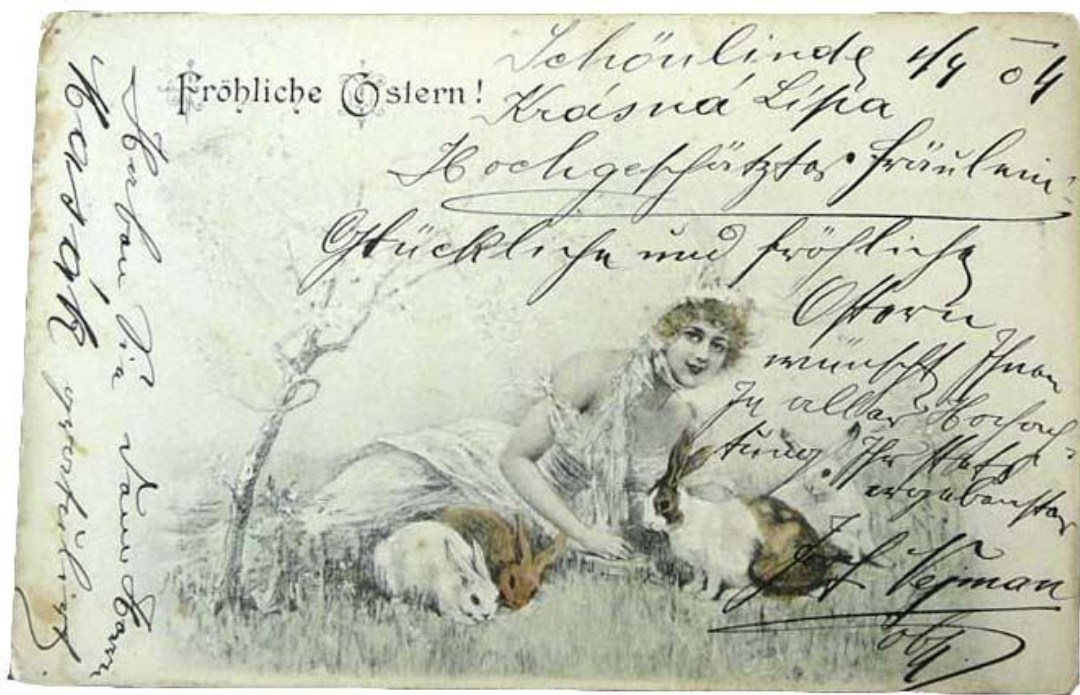 Fröhliche Ostern!
Schönlinde 1/4 04
Krásná Lípa
Hochgeschätztes Fräulein!
Glückliche und fröhliche
Ostern
wünscht Ihnen
In aller Hochach-
tung Ihr stets
ergebenster
Jos Vejman
Haben Sie
Kasák